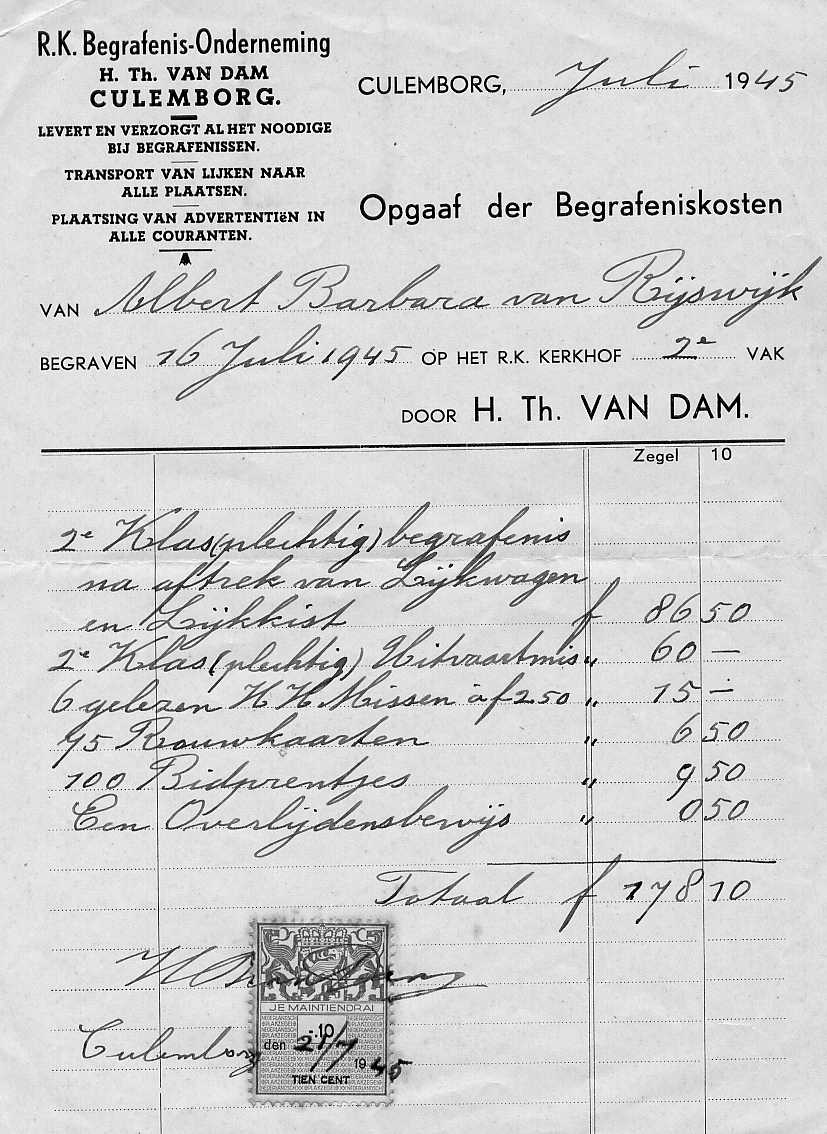 R.K. Begrafenis-Onderneming
H. Th. VAN DAM
CULEMBORG.
LEVERT EN VERZORGT AL HET NOODIGE
BIJ BEGRAFENISSEN.
TRANSPORT VAN LIJKEN NAAR
ALLE PLAATSEN.
PLAATSING VAN ADVERTENTIËN IN
ALLE COURANTEN.
CULEMBORG, Juli 1945
Opgaaf der Begrafeniskosten
VAN Albert Barbara van Rijswijk
BEGRAVEN 16 Juli 1945 OP HET R.K. KERKHOF 2e VAK
DOOR H. Th. VAN DAM.
Zegel 10
2e Klas (plechtig) begrafenis
na aftrek van Lijkwagen
en Lijkkist f 86 50
2e Klas (plechtig) Uitvaartmis " 60 —
6 gelezen H H Missen à f 2.50 " 15 —
75 Rouwkaarten " 6 50
100 Bidprentjes " 9 50
Een Overlijdensbewijs " 0 50
Totaal f 178 10
JE MAINTIENDRAI
Culemborg
10
den 21/7 1945
TIEN CENT